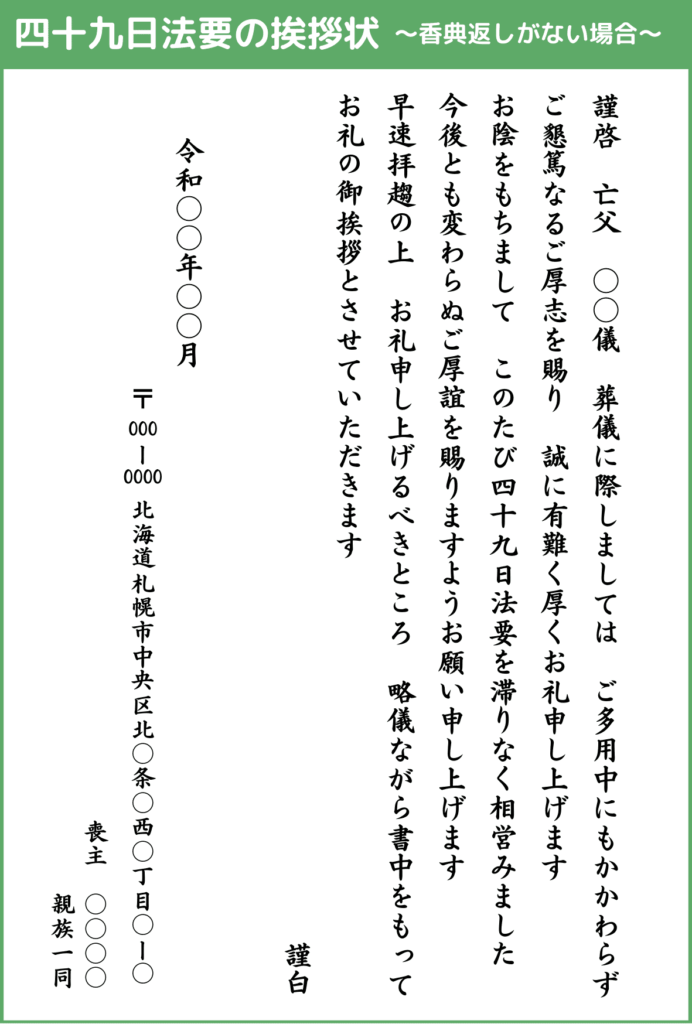 四十九日法要の挨拶状 ～香典返しがない場合～
謹啓　亡父　〇〇儀　葬儀に際しましては　ご多用中にもかかわらず
ご懇篤なるご厚志を賜り　誠に有難く厚くお礼申し上げます
お陰をもちまして　このたび四十九日法要を滞りなく相営みました
今後とも変わらぬご厚誼を賜りますようお願い申し上げます
早速拝趨の上　お礼申し上げるべきところ　略儀ながら書中をもって
お礼の御挨拶とさせていただきます
謹白
令和〇〇年〇〇月
〒000ー0000 北海道札幌市中央区北〇条〇西〇丁目〇ー〇
喪主　〇〇〇〇
親族一同